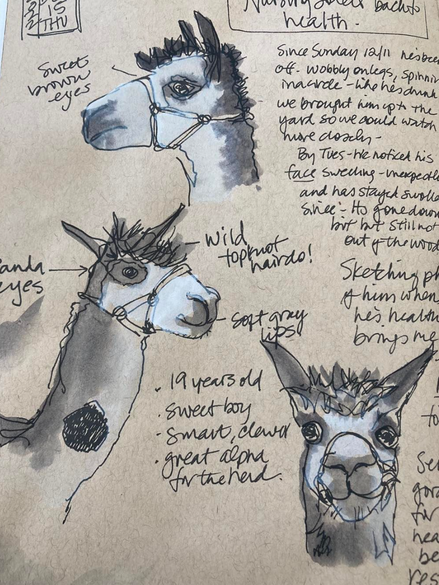 15
THU
Nursing back to
health.
sweet
brown
eyes
Since Sunday 12/11 he's been
off - wobbly on legs, spinning
in a circle - like he's drunk
we brought him up to the
yard so we could watch
more closely -
By Tues - He noticed his
face swelling - unexpectedly
and has stayed swollen
since - It's gone down
bit but still not
out of the wood
wild
topknot
hairdo!
Panda
eyes
Soft gray
lips
Sketching ph
of him when
he's health
brings me
• 19 years old
• sweet boy
• smart, clever
• great alpha
for the herd.
to
Ser
for
hea
be
res